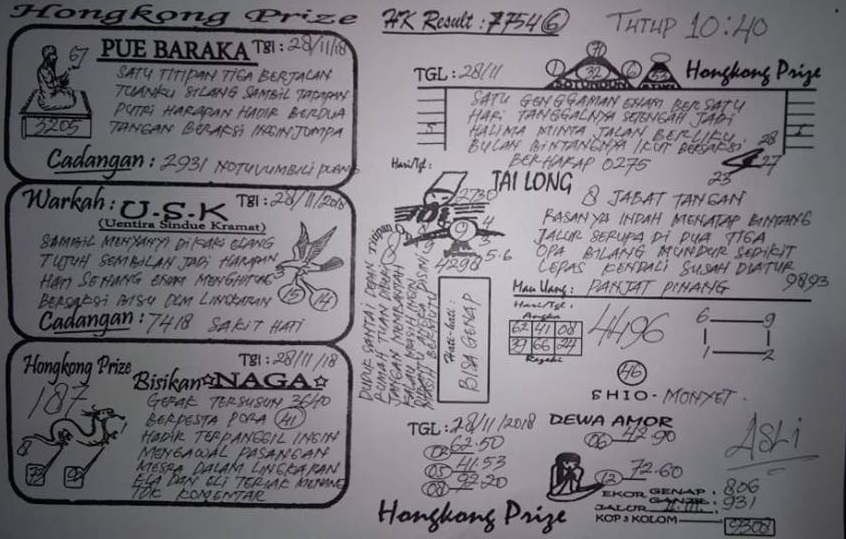 Hongkong Prize
PUE BARAKA Tgl : 28/11/18
67
SATU TITIPAN TIGA BERJALAN
TUANKU SILANG SAMBIL TATAPAN
PUTRI HARAPAN HADIR BERDUA
TANGAN BERAKSI INGIN JUMPA
3205
Cadangan : 2931
Warkah : U-S-K Tgl : 28/11/2018
(Uentira Sindue Kramat)
SAMBIL MENYANYI DIKAKI ELANG
TUJUH SEMBILAN JADI HARAPAN
HATI SENANG ENAM MENGHITUNG
BERSAKSI BISU DLM LINGKARAN
15 14
Cadangan : 7418 SAKIT HATI
Hongkong Prize Tgl : 28/11/18
187
Bisikan NAGA
GERAK TERSUSUN 36/40
BERPESTA PORA 41
HADIR TERPANGGIL INGIN
MENGAWAL PASANGAN
MESRA DALAM LINGKARAN
ELA DAN ELI TERIAK MENANG
TOK KOMENTAR
HK Result : 7754 6 TUTUP 10:40
71
TGL : 28/11 1 32 6 Hongkong Prize
SATU GENGGAMAN ENAM BERSATU
HARI TANGGALNYA SETENGAH JADI
HALIMA MINTA JALAN BERLIKU
BULAN BINTANGNYA IKUT BERSAKSI
BERHARAP 0275
28
27
23
Hari/Tgl :
TAI LONG
2730
4298 5.6
8 JABAT TANGAN
RASANYA INDAH MENATAP BINTANG
JALUR SERUPA DI DUA TIGA
OPA BILANG MUNDUR SEDIKIT
LEPAS KENDALI SUSAH DIATUR
Mau Uang : PANJAT PINANG 9893
Hati-hati :
BISA GENAP
Hari/Tgl :
Angka
62 41 08
39 66 24
Rezeki
4496
6 9
1 2
46
SHIO - MONYET.
TGL : 28/11/2018
62.50
05 41.53
08 92.20
DEWA AMOR
06 42.90
12 72.60
ASLI
EKOR GENAP : 806
GANJIL : 931
JALUR
KOP 3 KOLOM 9308
Hongkong Prize